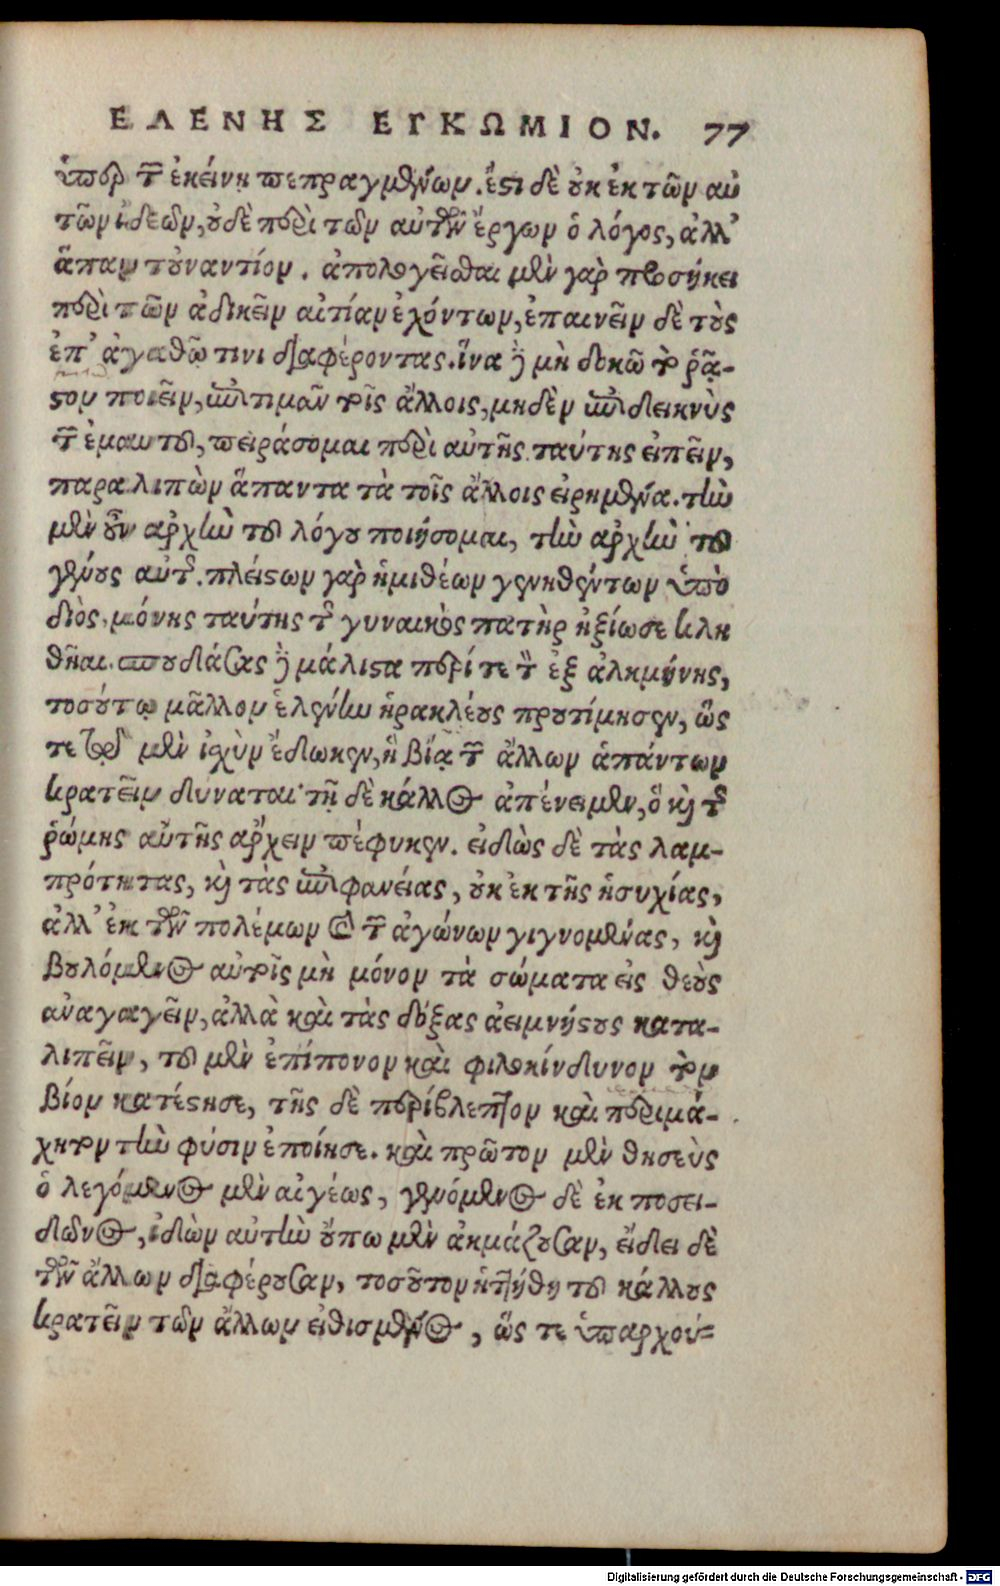 ΕΛΕΝΗΣ ΕΓΚΩΜΙΟΝ. 77
ὑπὲρ τῶν ἐκείνῃ πεπραγμένων. ἔστι δὲ οὐκ ἐκ τῶν αὐ
τῶν ἰδεῶν, οὐδὲ περὶ τῶν αὐτῶν ἔργων ὁ λόγος, ἀλλ'
ἅπαν τοὐναντίον. ἀπολογεῖσθαι μὲν γὰρ προσήκει
περὶ τῶν ἀδικεῖν αἰτίαν ἐχόντων, ἐπαινεῖν δὲ τοὺς
ἐπ' ἀγαθῷ τινι διαφέροντας. ἵνα δὲ μὴ δοκῶ τὸ ῥᾷ-
στον ποιεῖν, ἐπιτιμᾶν τοῖς ἄλλοις, μηδὲν ἐπιδεικνὺς
τῶν ἐμαυτοῦ, πειράσομαι περὶ αὐτῆς ταύτης εἰπεῖν,
παραλιπὼν ἅπαντα τὰ τοῖς ἄλλοις εἰρημένα. τὴν
μὲν οὖν ἀρχὴν τοῦ λόγου ποιήσομαι, τὴν ἀρχὴν τοῦ
γένους αὐτῆς. πλείστων γὰρ ἡμιθέων γεννηθέντων ὑπὸ
διὸς, μόνης ταύτης τῆς γυναικὸς πατὴρ ἠξίωσε κλη
θῆναι. σπουδάσας δὲ μάλιστα περί τε τὸν ἐξ ἀλκμήνης,
τοσούτῳ μᾶλλον ἑλένην ἡρακλέους προυτίμησεν, ὥς
τε τῷ μὲν ἰσχὺν ἔδωκεν, ἣ βίᾳ τῶν ἄλλων ἁπάντων
κρατεῖν δύναται· τῇ δὲ κάλλος ἀπένειμεν, ὃ καὶ τῆς
ῥώμης αὐτῆς ἄρχειν πέφυκεν. εἰδὼς δὲ τὰς λαμ-
πρότητας, καὶ τὰς ἐπιφανείας, οὐκ ἐκ τῆς ἡσυχίας,
ἀλλ' ἐκ τῶν πολέμων καὶ τῶν ἀγώνων γιγνομένας, καὶ
βουλόμενος αὐτοῖς μὴ μόνον τὰ σώματα εἰς θεοὺς
ἀναγαγεῖν, ἀλλὰ καὶ τὰς δόξας ἀειμνήστους κατα-
λιπεῖν, τοῦ μὲν ἐπίπονον καὶ φιλοκίνδυνον τὸν
βίον κατέστησε, τῆς δὲ περίβλεπτον καὶ περιμά-
χητον τὴν φύσιν ἐποίησε. καὶ πρῶτον μὲν θησεὺς
ὁ λεγόμενος μὲν αἰγέως, γενόμενος δὲ ἐκ ποσει-
δῶνος, ἰδὼν αὐτὴν οὔπω μὲν ἀκμάζουσαν, εἴδει δὲ
τῶν ἄλλων διαφέρουσαν, τοσοῦτον ἡττήθη τοῦ κάλλους
κρατεῖν τῶν ἄλλων εἰθισμένος, ὥς τε ὑπαρχού=
Digitalisierung gefördert durch die Deutsche Forschungsgemeinschaft - DFG